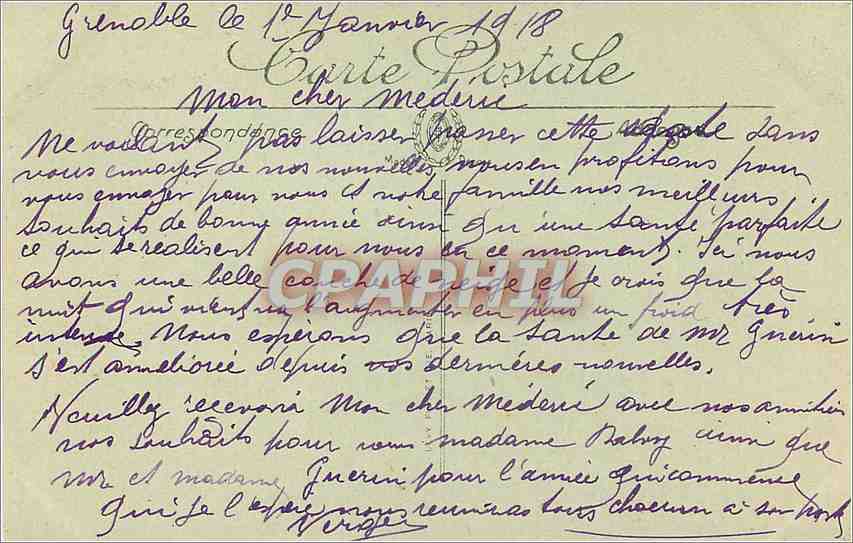 Grenoble le 1e Janvier 1918
Carte Postale
Mon cher Mederic
Correspondance
Ne voulant pas laisser passer cette date sans
vous envoyer de nos nouvelles, nous en profitons pour
vous envoyer pour vous et notre famille nos meilleurs
souhaits de bonne année ainsi qu'une santé parfaite
ce qui se realisent pour nous en ce moment. Ici nous
avons une belle couche de neige et je crois que la
nuit qui vient va l'augmenter en plus un froid très
intense. Nous espérons que la santé de Mr Guerin
s'est ameliorée depuis vos dernières nouvelles.
CPAPHIL
Veuillez recevoir Mon cher Méderic avec nos amitiés
nos souhaits pour vous madame ainsi que
Mr et madame Guerin pour l'année qui commence
qui je l'espère nous reunira tous chacun à son
Verger